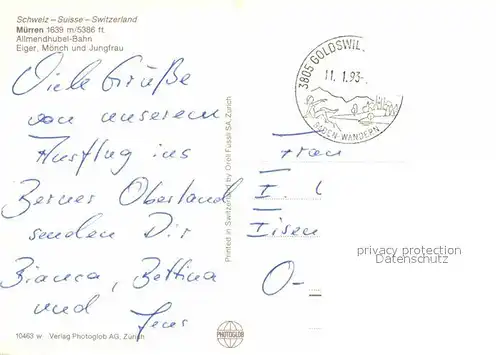 Schweiz – Suisse – Switzerland
Mürren 1639 m/5386 ft
Allmendhubel-Bahn
Eiger, Mönch und Jungfrau
Viele Grüße
von unserem
Ausflug ins
Berner Oberland
senden Dir
Bianca, Bettina
und Jens
10463 w Verlag Photoglob AG, Zürich
Printed in Switzerland by Orell Füssli SA, Zürich
PHOTOGLOB
3805 GOLDSWIL
11. 1.93-
BADEN-WANDERN
Frau
I.
Eisen
O-
privacy protection
Datenschutz